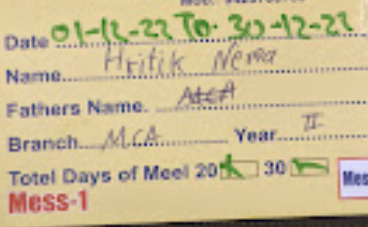 Date 01-12-22 To 30-12-22
Name Hritik Nema
Fathers Name.
Branch MCA Year II
Totel Days of Meel 20 30
Mess-1